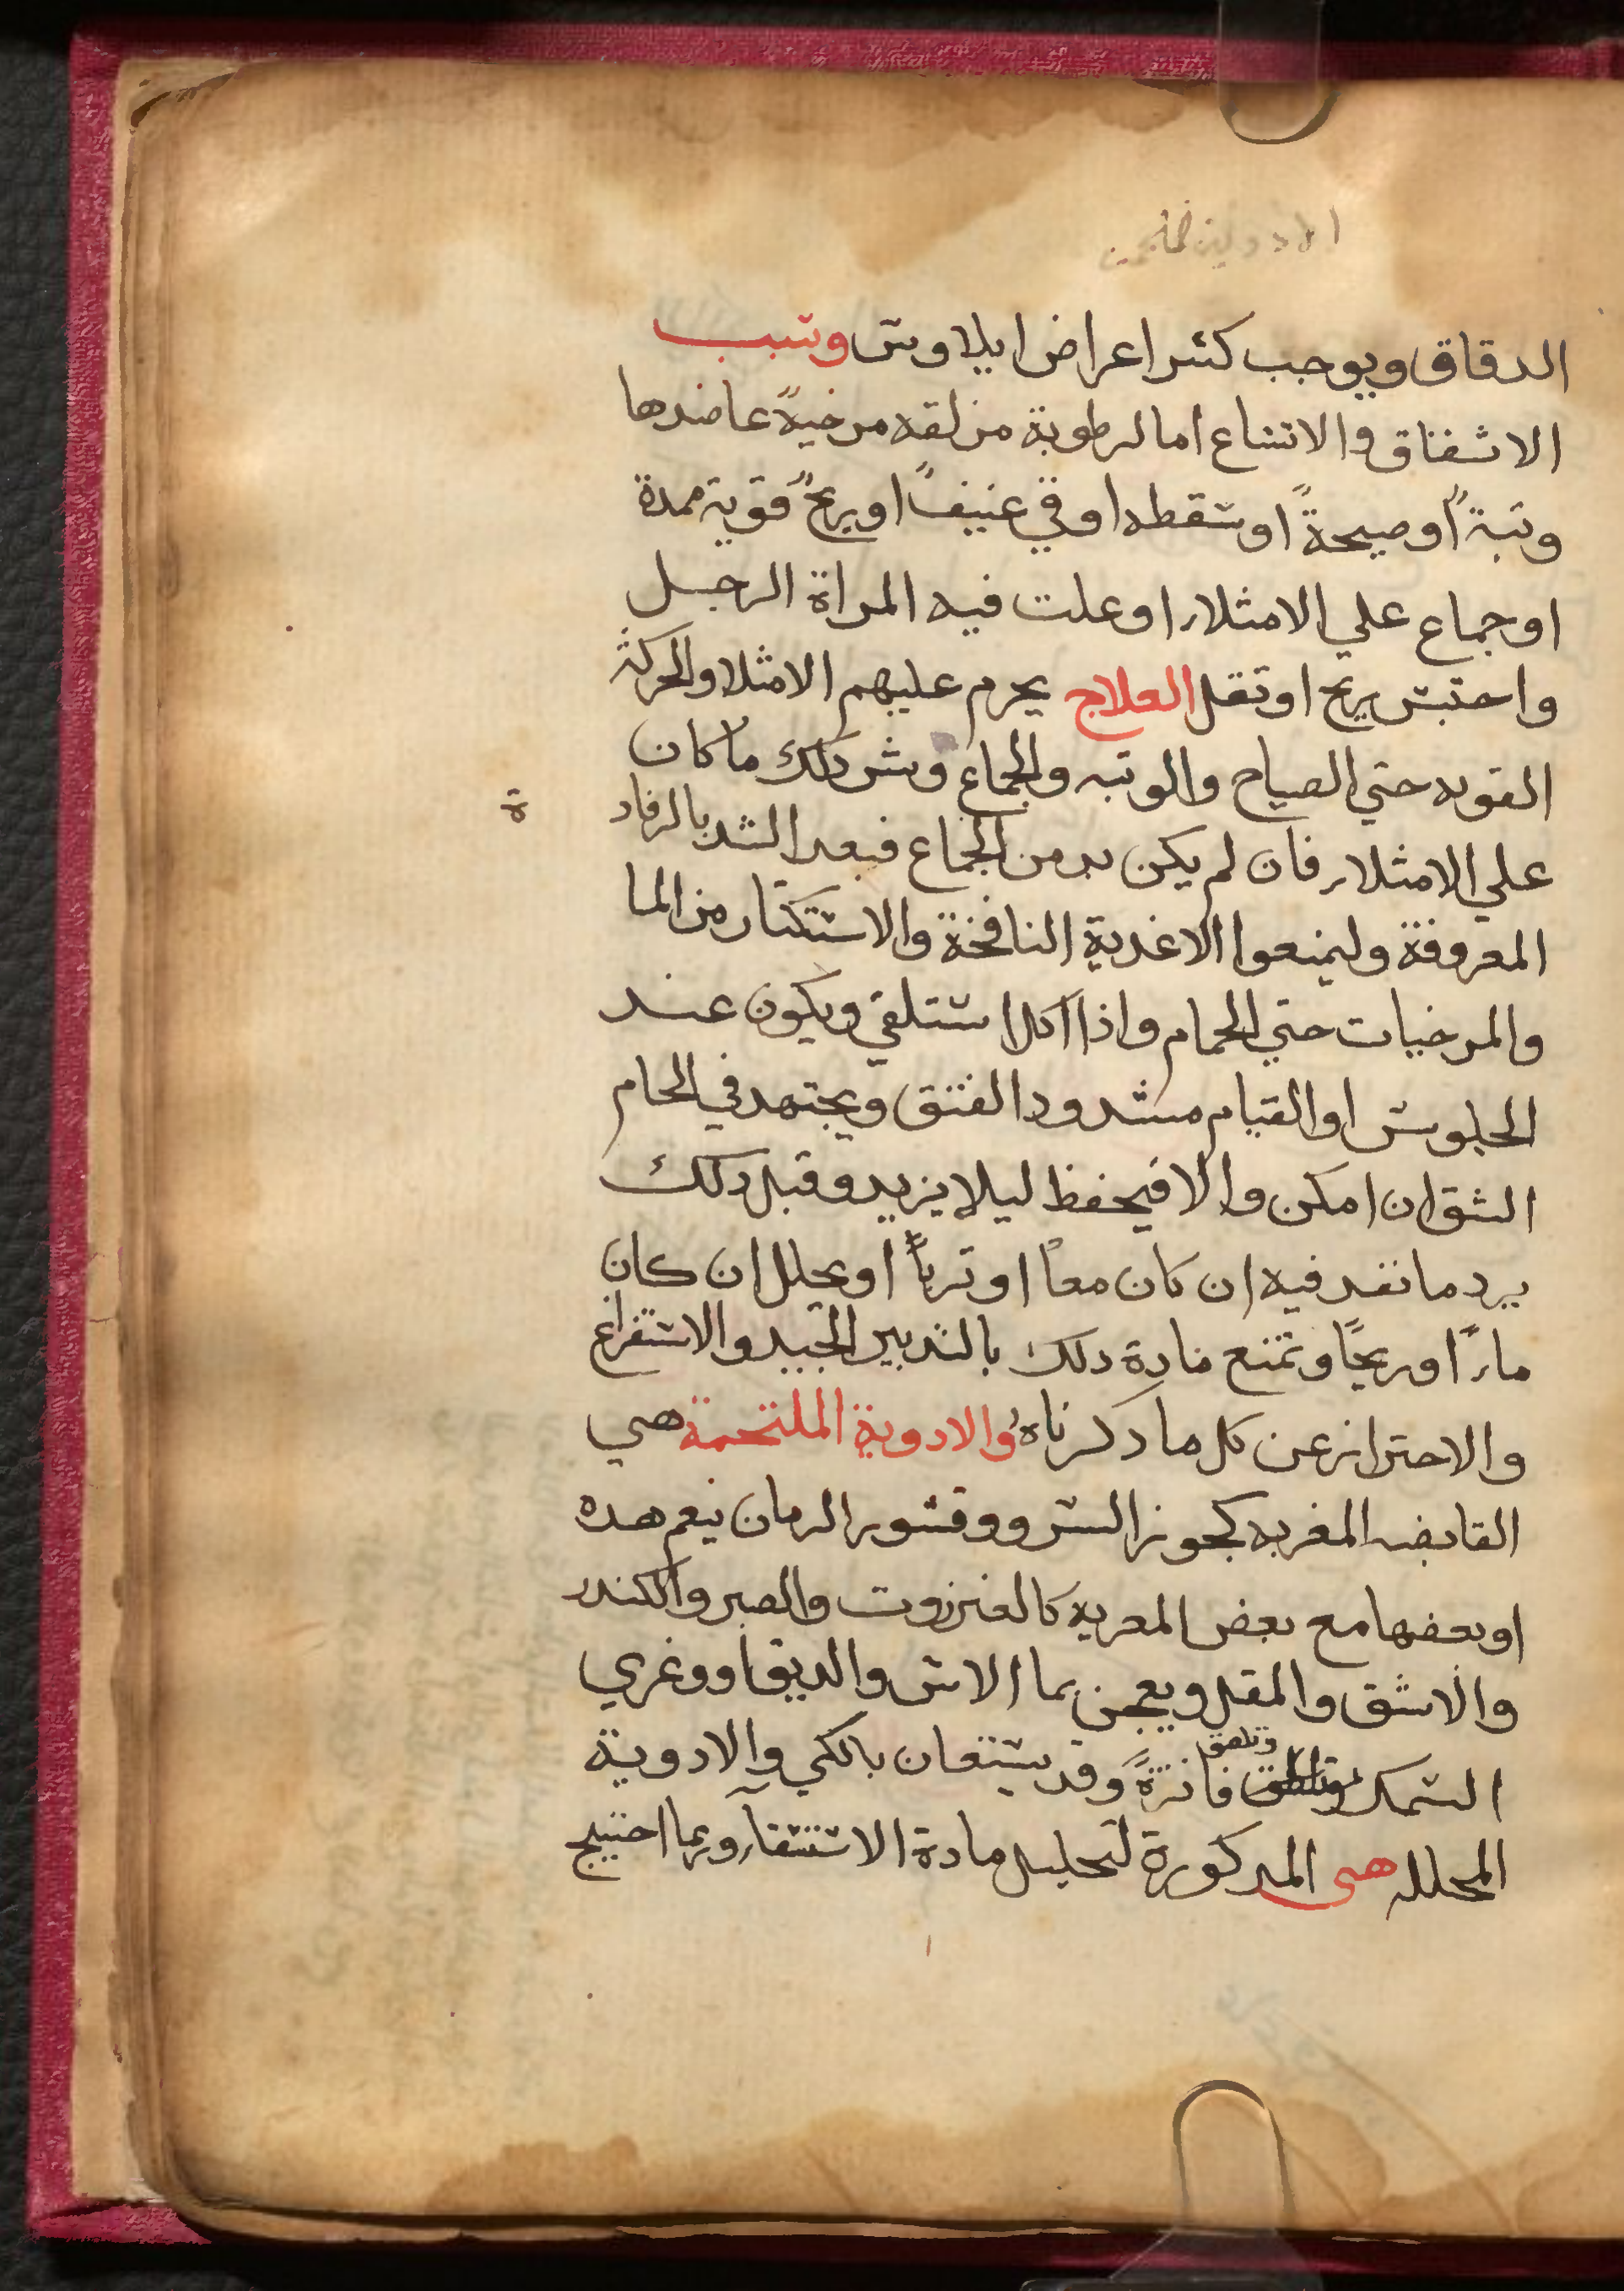 الدقاق ويوجب كثير اعراض ايلاوس وسبب
الاشقاق والاتساع اما لرطوبة مزلقه مرخيةً عاضدها
وثبةً او صيحةً او سقطه او قي عنيفً او ريحً قوية ممددة
او جماع علي الامتلاء او علت فيه المراة الرجل
واحتبس ريح او ثقل العلاج يحرم عليهم الامتلا والحركة
القويه حتي الصياح والوثبه والجماع وشر ذلك ما كان
علي الامتلاء فان لم يكن بد من الجماع فبعد الشد بالرفاد
ة
المعروفة وليمنعوا الاغدية النافخة والاستكثار من الما
والمرخيات حتي الحمام واذا اكل استلقي ويكون عند
الجلوس او القيام مشدود الفتق ويجتهد في الحام
الشق ان امكن والا فيحفظ ليلا يزيد وقبل ذلك
يرد ما نفد فيه ان كان معاً او ترباً او يحلل ان كان
ماءً او ريحًا وتمنع مادة دلك بالتدبير الجيد والاستفراغ
والاحتراز عن كل ما دكرناه والادوية الملتحمة هي
القابضه المغريه كجوز السرو وقشور الرمان نيعم هده
او بعضها مع بعض المعريه كالعنزروت والصبر والكندر
والاشق والمقل ويعجن بما الاس والدبق او وغري
السمك وتلصق فاترةً وقد يستعان بالكي والادوية
المحلله هي المدكورة لتحليل مادة الاستسقاء وربما احتيج